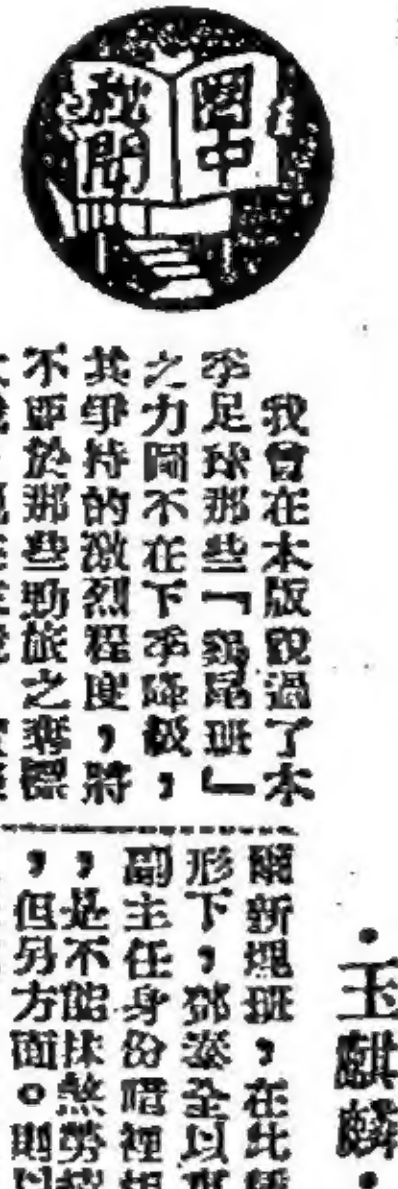 圈中
秘聞
・玉麒麟・
我曾在本版說過了本
季足球那些「雞尾班」
之力圖不在下季降級，
其爭持的激烈程度，將
不亞於那些勁旅之奪標
新班，在此
形下，鄧全以
副主任身份暗裡
，是不能抹煞勞
，但另方面。則以